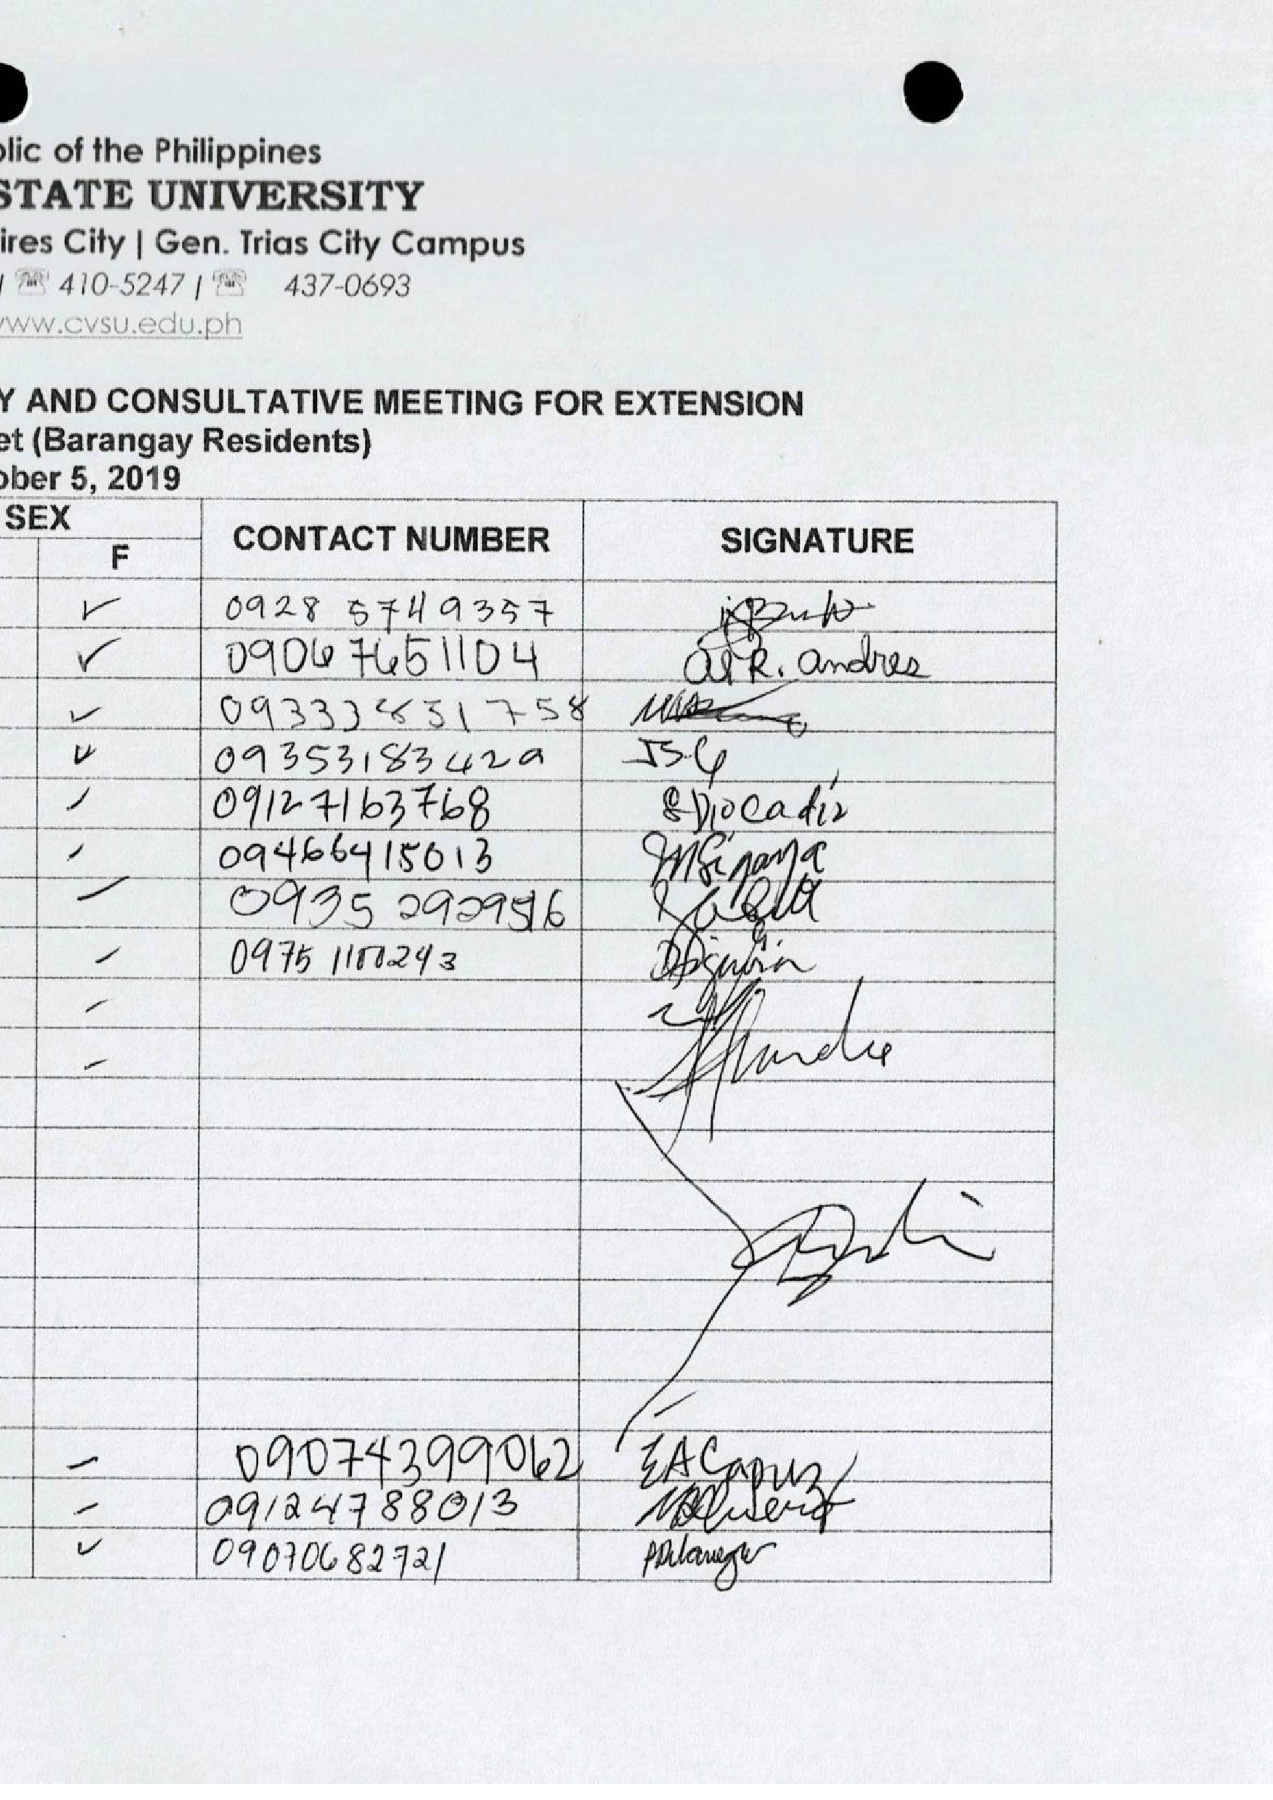 lic of the Philippines
STATE UNIVERSITY
ires City | Gen. Trias City Campus
| ☏ 410-5247 | ☏ 437-0693
www.cvsu.edu.ph
Y AND CONSULTATIVE MEETING FOR EXTENSION
et (Barangay Residents)
ober 5, 2019
SEX
F
CONTACT NUMBER
SIGNATURE
✓ 0928 5749357
✓ 09067651104 R. Andres
✓ 09333831758
✓ 09353183429 JSG
09127163768 S Diocadiz
09466415013
0935 2929516
0975 1100243
09074399062 EACapuz
09124788013
✓ 09070682721